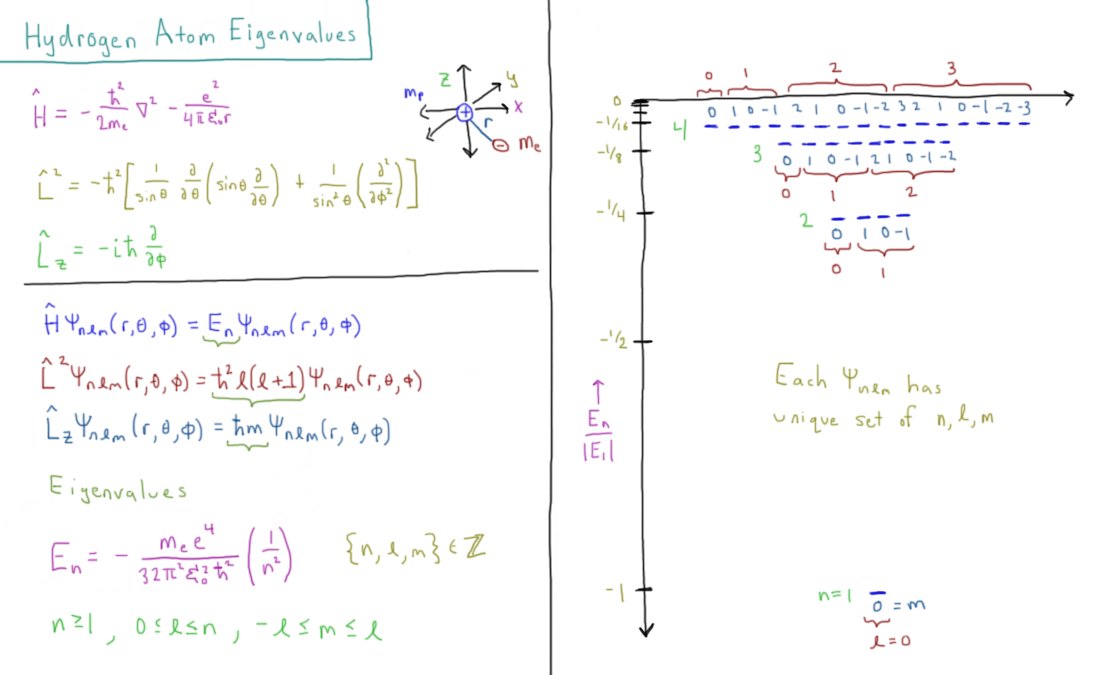 Hydrogen Atom Eigenvalues
Ĥ = - ħ²/2mₑ ∇² - e²/4πε₀r
z
y
x
mₚ
r
mₑ
L̂² = -ħ²[1/sinθ ∂/∂θ (sinθ ∂/∂θ) + 1/sin²θ (∂²/∂φ²)]
L̂z = -iħ ∂/∂φ
ĤΨnℓm(r,θ,φ) = EnΨnℓm(r,θ,φ)
L̂²Ψnℓm(r,θ,φ) = ħ²ℓ(ℓ+1)Ψnℓm(r,θ,φ)
L̂zΨnℓm(r,θ,φ) = ħmΨnℓm(r,θ,φ)
Eigenvalues
En = - mₑe⁴/32π²ε₀²ħ² (1/n²) {n,ℓ,m} ∈ ℤ
n≥1, 0≤ℓ≤n, -ℓ≤m≤ℓ
0 1 2 3
0
0 1 0 -1 2 1 0 -1 -2 3 2 1 0 -1 -2 -3
-1/16
4
-1/8
3
0 1 0 -1 2 1 0 -1 -2
0 1 2
-1/4
2
0 1 0 -1
0 1
-1/2
↑
En/|E₁|
Each Ψnℓm has
unique set of n,ℓ,m
-1
n=1
0 = m
ℓ=0